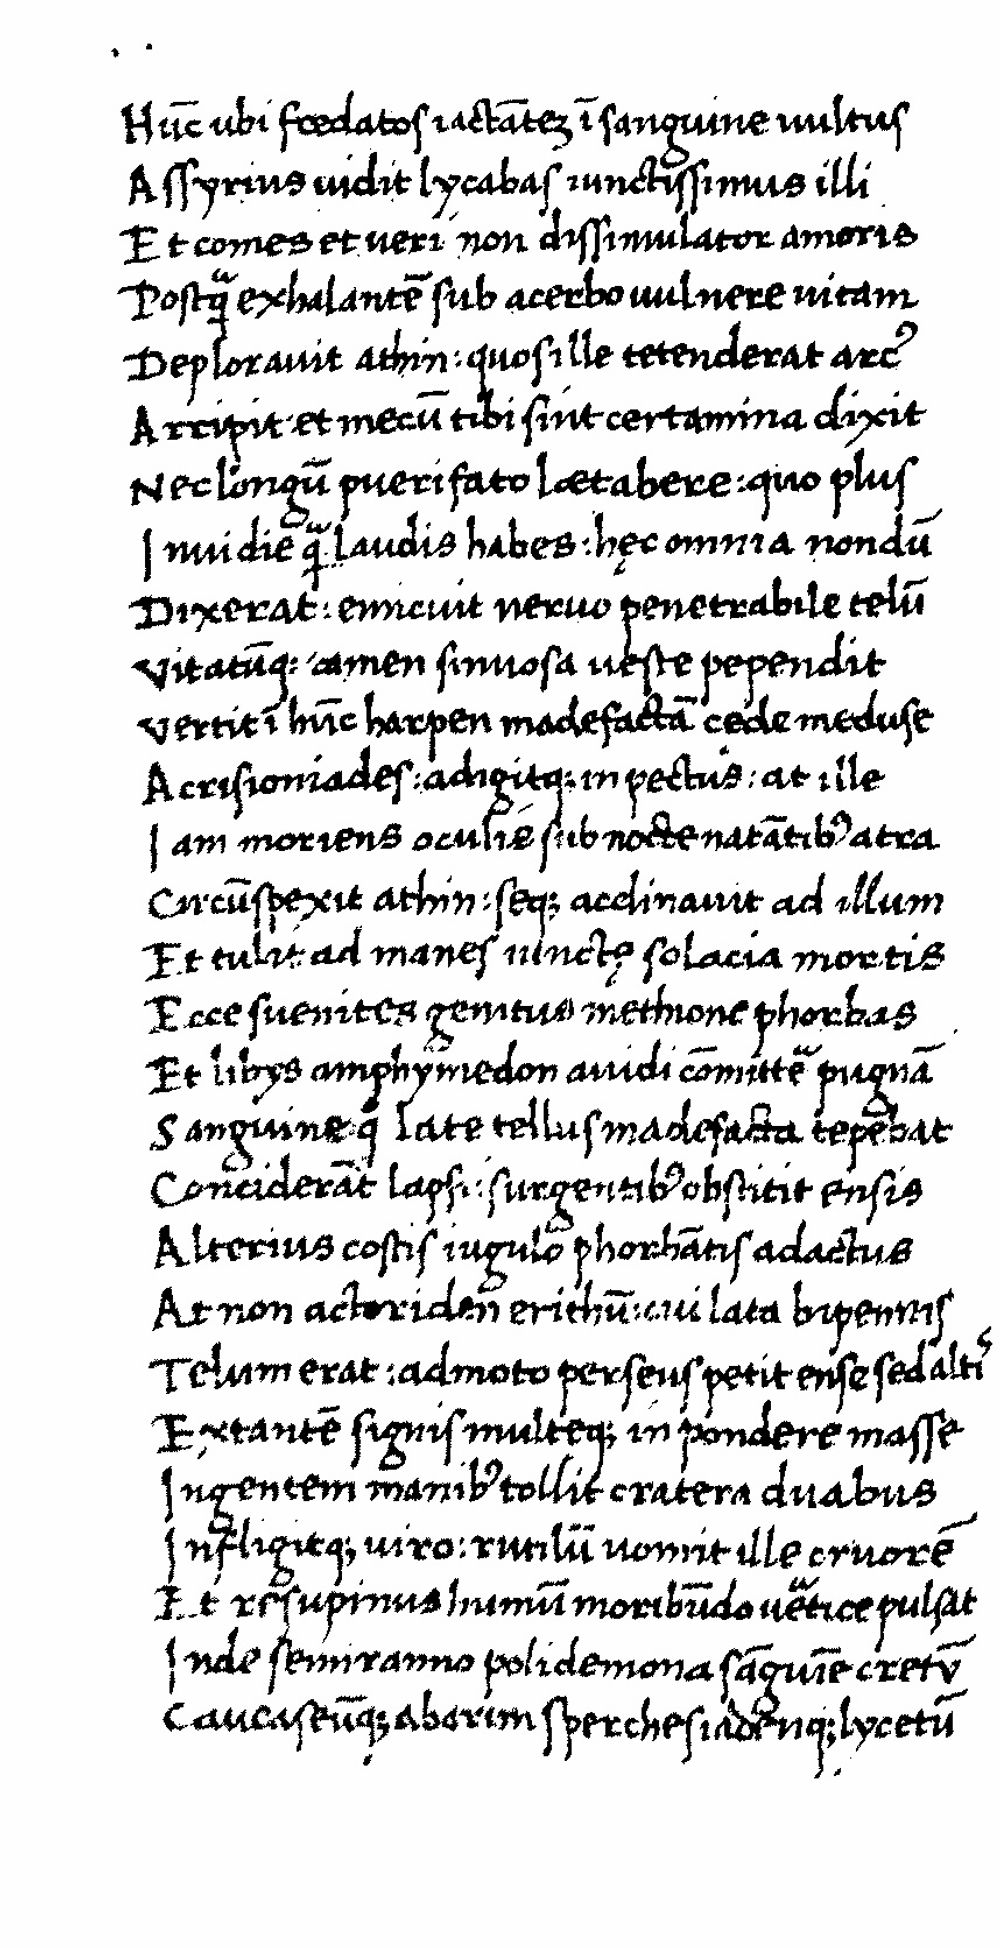 Hūc ubi fœdatos iactātez ī sanguine uultus
Assyrius uidit lycabas iunctissimus illi
Et comes et ueri non dissimulator amoris
Postq̃ exhalantē sub acerbo uulnere uitam
Deplorauit athin: quos ille tetenderat arcꝰ
Arripit et mecū tibi sint certamina dixit
Nec longū pueri fato lætabere: quo plus
Inuidie q̃ laudis habes: hęc omnia nondū
Dixerat: emicuit neruo penetrabile telū
Vitatūq; tamen sinuosa ueste pependit
Vertit ī hūc harpen madefactā cęde meduse
Acrisioniades: adigitq; in pectus: at ille
Iam moriens oculis sub nocte natātibꝰ atra
Circūspexit athin: seq; acclinauit ad illum
Et tulit ad manes iunctę solacia mortis
Ecce suenites genitus methione phorbas
Et libys amphymedon auidi cōmittẽ pugnā
Sanguine q̊ late tellus madefacta tepebat
Conciderāt lapsi: surgentibꝰ obstitit ensis
Alterius costis iugulo phorbātis adactus
At non actoriden erithū: cui lata bipennis
Telum erat: admoto perseus petit ense sed altiˢ
Extantē signis multeq; in pondere masse
Ingentem manibꝰ tollit cratera duabus
Infligitq; uiro: rutilū uomit ille cruorē
Et resupinus humū moribūdo uẽtice pulsat
Inde semiramio polidemona sāguīe cretū
Caucaseūq; abarim sperchesiadenq; lycetū